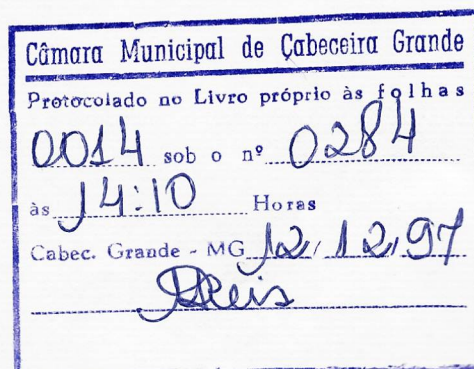 Câmara Municipal de Cabeceira Grande
Protocolado no Livro próprio às folhas
0014 sob o nº 0284
às 14:10 Horas
Cabec. Grande - MG 12/12/97
Reis